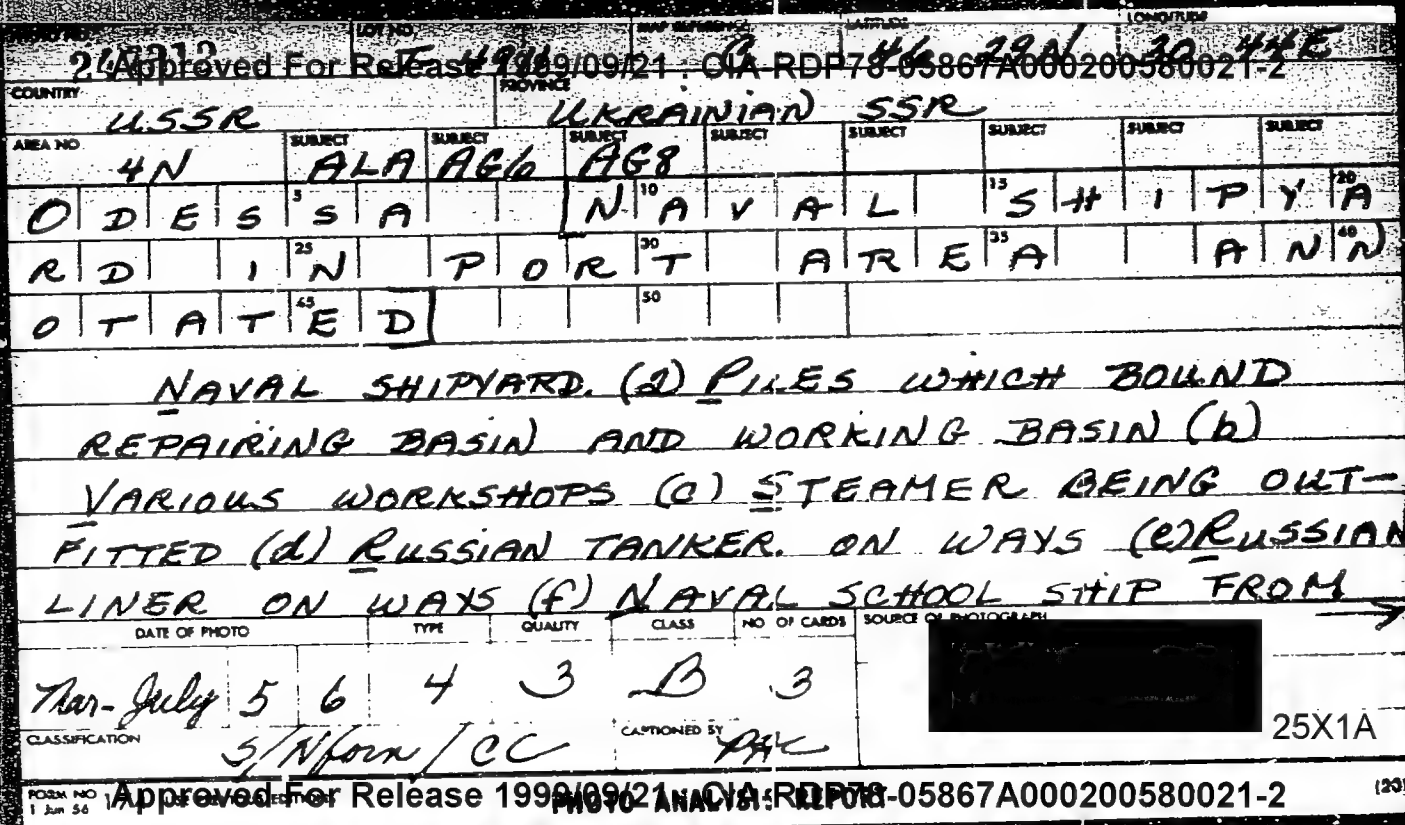 LOT NO. MAP REFERENCE LATITUDE LONGITUDE
46 29N 30 44E
Approved For Release 1999/09/21 : CIA-RDP78-05867A000200580021-2
COUNTRY PROVINCE
USSR UKRAINIAN SSR
AREA NO. SUBJECT SUBJECT SUBJECT SUBJECT SUBJECT SUBJECT SUBJECT SUBJECT
4N ALA AG6 AG8
5 10 15 20
ODESSA NAVAL SHIPYA
25 30 35 40
RD IN PORT AREA ANN
45 50
OTATED
NAVAL SHIPYARD. (a) PILES WHICH BOUND
REPAIRING BASIN AND WORKING BASIN (b)
VARIOUS WORKSHOPS (c) STEAMER BEING OUT-
FITTED (d) RUSSIAN TANKER. ON WAYS (e) RUSSIAN
LINER ON WAYS (f) NAVAL SCHOOL SHIP FROM →
DATE OF PHOTO TYPE QUALITY CLASS NO OF CARDS SOURCE OF PHOTOGRAPH
Mar-July 5 6 4 3 B 3
25X1A
CLASSIFICATION CAPTIONED BY
S/Nforn/CC
FORM NO
1 Jun 56
Approved For Release 1999/09/21 : CIA-RDP78-05867A000200580021-2
PHOTO ANALYSIS REPORT
(20)